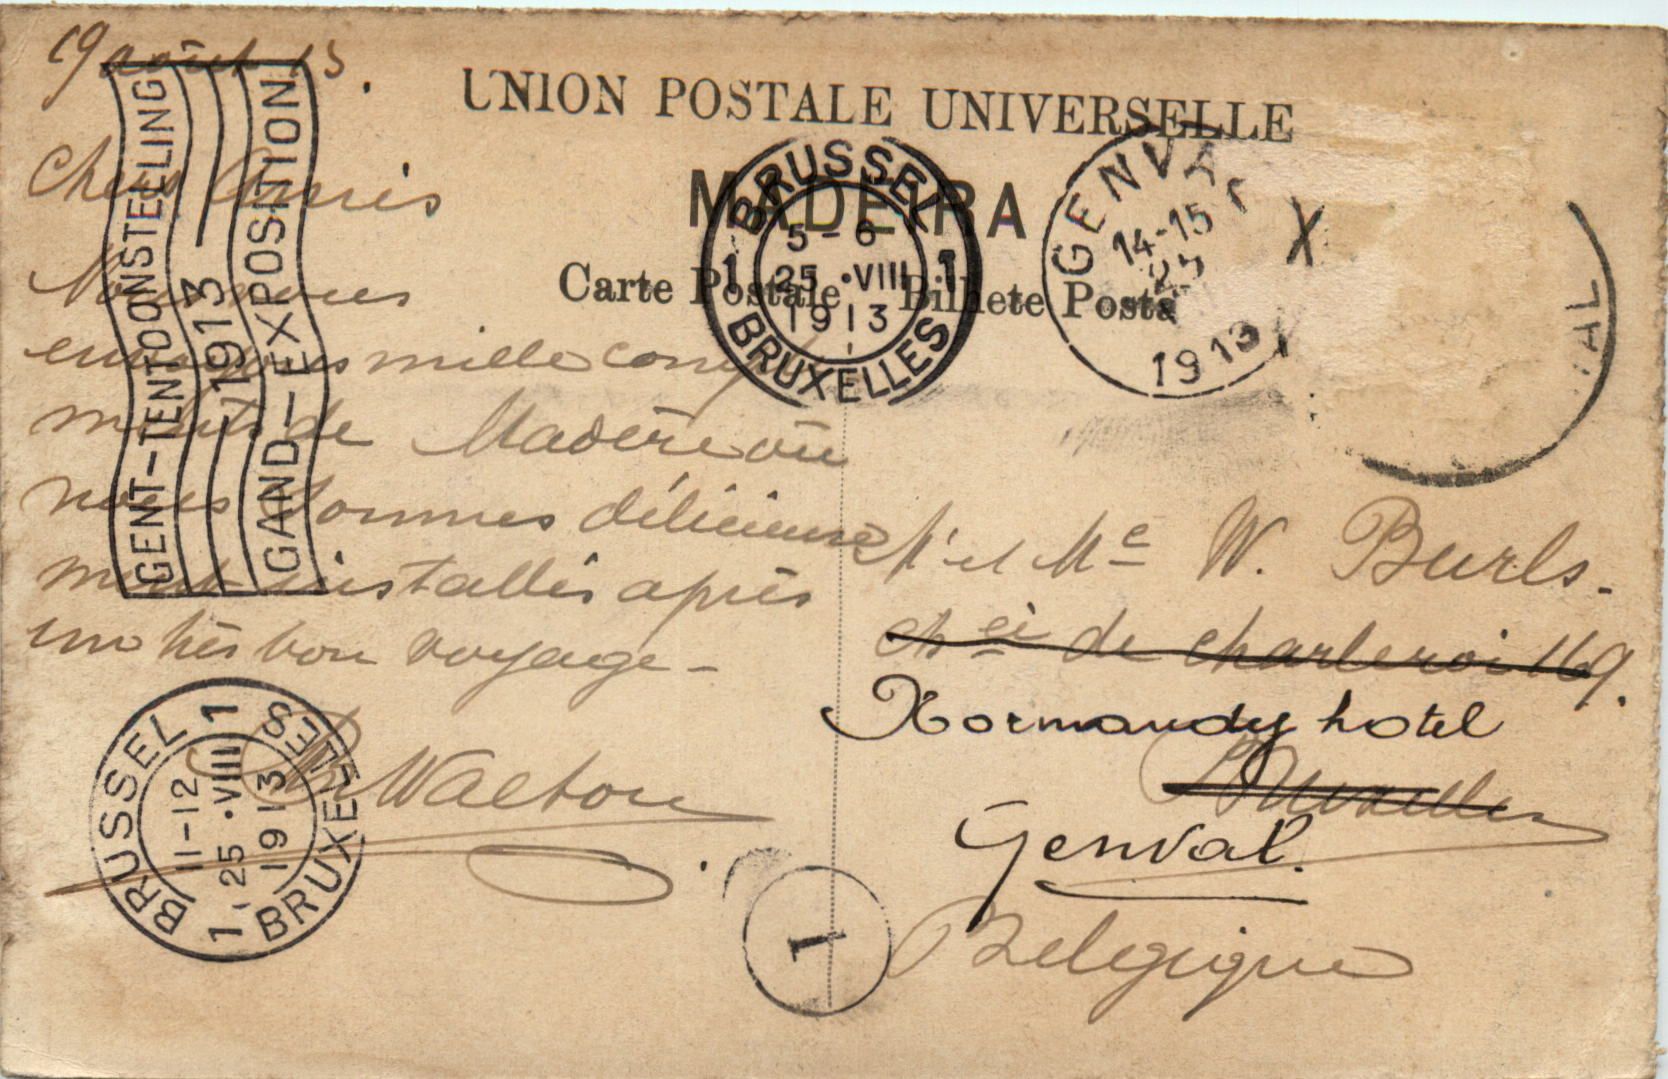 19 août 13.
UNION POSTALE UNIVERSELLE
MADEIRA
Carte Postale Bilhete Posta
Chers Amis
Nous vous
envoyons mille compli
ments de Madère où
nous sommes délicieuse
ment installés après
un très bon voyage -
Walton
Mr et Me W. Burls.
Chée de Charleroi 169.
Normandy hotel
Bruxelles
Genval.
Belgique
GENT-TENTOONSTELLING
1913
GAND-EXPOSITION
BRUSSEL
1 1
5-6
25 ·VIII
1913
BRUXELLES
GENVA
14-15
1913
X
VAL
BRUSSEL 1
11-12
25 ·VIII
1913
1 BRUXELLES
1